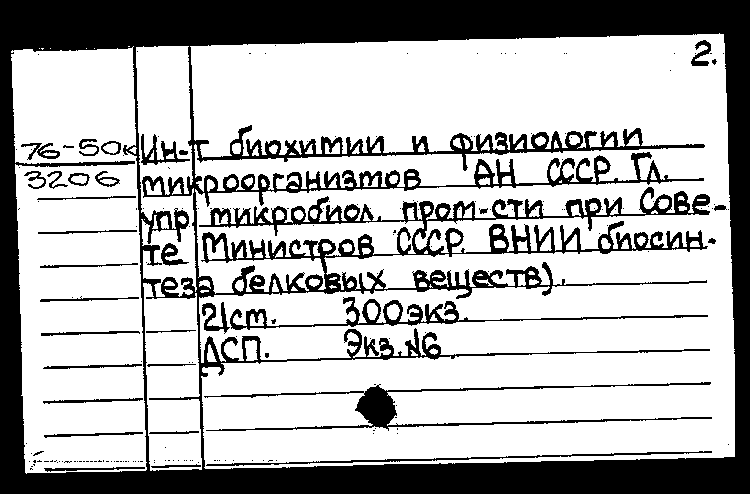 2.
76-50к Ин-т биохимии и физиологии
3206 микроорганизмов АН СССР. Гл.
упр. микробиол. пром-сти при Сове-
те Министров СССР. ВНИИ биосин-
теза белковых веществ).
21ст. 300экз.
ДСП. Экз.№6.